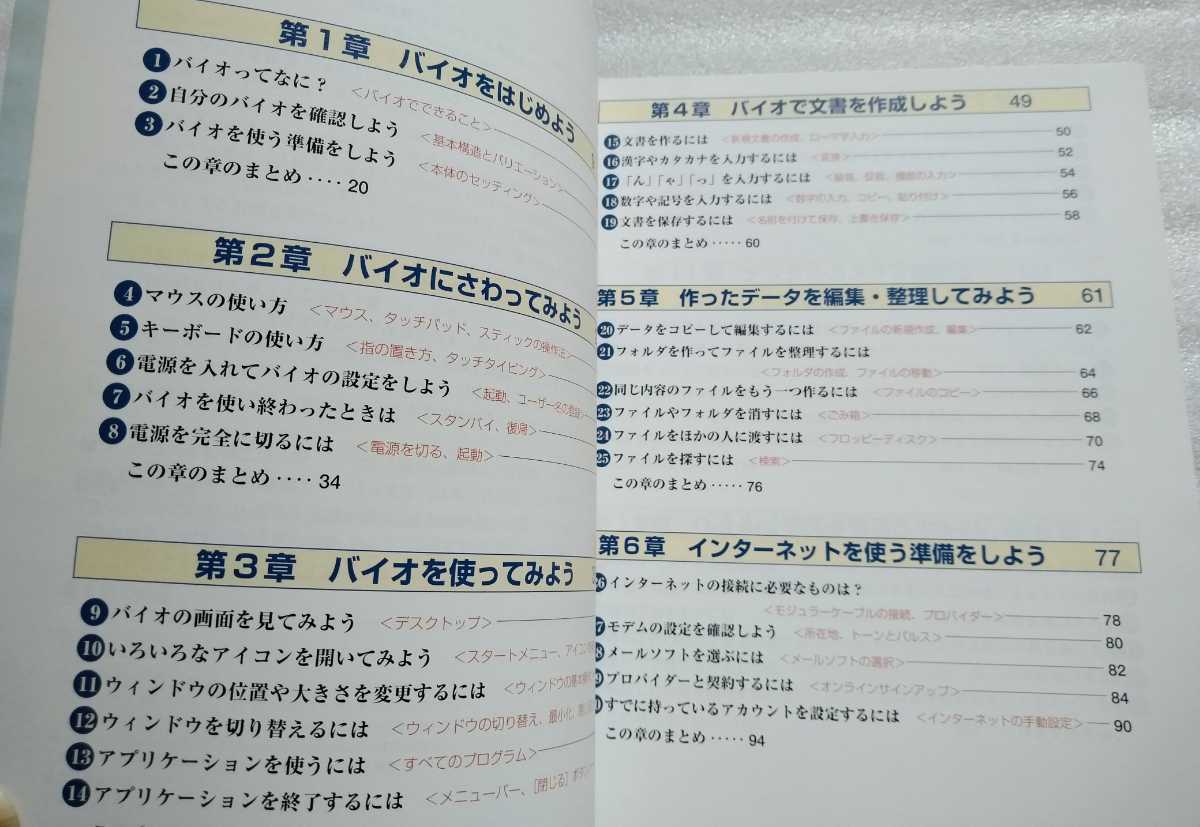 第1章 バイオをはじめよう
1 バイオってなに？ <バイオでできること>
2 自分のバイオを確認しよう <基本構造とバリエーション>
3 バイオを使う準備をしよう <本体のセッティング>
この章のまとめ‥‥20
第2章 バイオにさわってみよう
4 マウスの使い方 <マウス、タッチパッド、スティックの操作法>
5 キーボードの使い方 <指の置き方、タッチタイピング>
6 電源を入れてバイオの設定をしよう <起動、ユーザー名の登録>
7 バイオを使い終わったときは <スタンバイ、復帰>
8 電源を完全に切るには <電源を切る、起動>
この章のまとめ‥‥34
第3章 バイオを使ってみよう
9 バイオの画面を見てみよう <デスクトップ>
10 いろいろなアイコンを開いてみよう <スタートメニュー、アイコン
11 ウィンドウの位置や大きさを変更するには <ウィンドウの基本
12 ウィンドウを切り替えるには <ウィンドウの切り替え、最小化、
13 アプリケーションを使うには <すべてのプログラム>
14 アプリケーションを終了するには <メニューバー、［閉じる］ボタン
第4章 バイオで文書を作成しよう 49
15 文書を作るには <新規文書の作成、ローマ字入力> 50
16 漢字やカタカナを入力するには <変換> 52
17 「ん」「ゃ」「っ」を入力するには <撥音、促音、拗音の入力> 54
18 数字や記号を入力するには <数字の入力、コピー、貼り付け> 56
19 文書を保存するには <名前を付けて保存、上書き保存> 58
この章のまとめ‥‥‥60
第5章 作ったデータを編集・整理してみよう 61
20 データをコピーして編集するには <ファイルの新規作成、編集> 62
21 フォルダを作ってファイルを整理するには
<フォルダの作成、ファイルの移動> 64
22 同じ内容のファイルをもう一つ作るには <ファイルのコピー> 66
23 ファイルやフォルダを消すには <ごみ箱> 68
24 ファイルをほかの人に渡すには <フロッピーディスク> 70
25 ファイルを探すには <検索> 74
この章のまとめ‥‥‥76
第6章 インターネットを使う準備をしよう 77
6 インターネットの接続に必要なものは？
<モジュラーケーブルの接続、プロバイダー> 78
7 モデムの設定を確認しよう <所在地、トーンとパルス> 80
8 メールソフトを選ぶには <メールソフトの選択> 82
9 プロバイダーと契約するには <オンラインサインアップ> 84
0 すでに持っているアカウントを設定するには <インターネットの手動設定> 90
この章のまとめ‥‥‥94